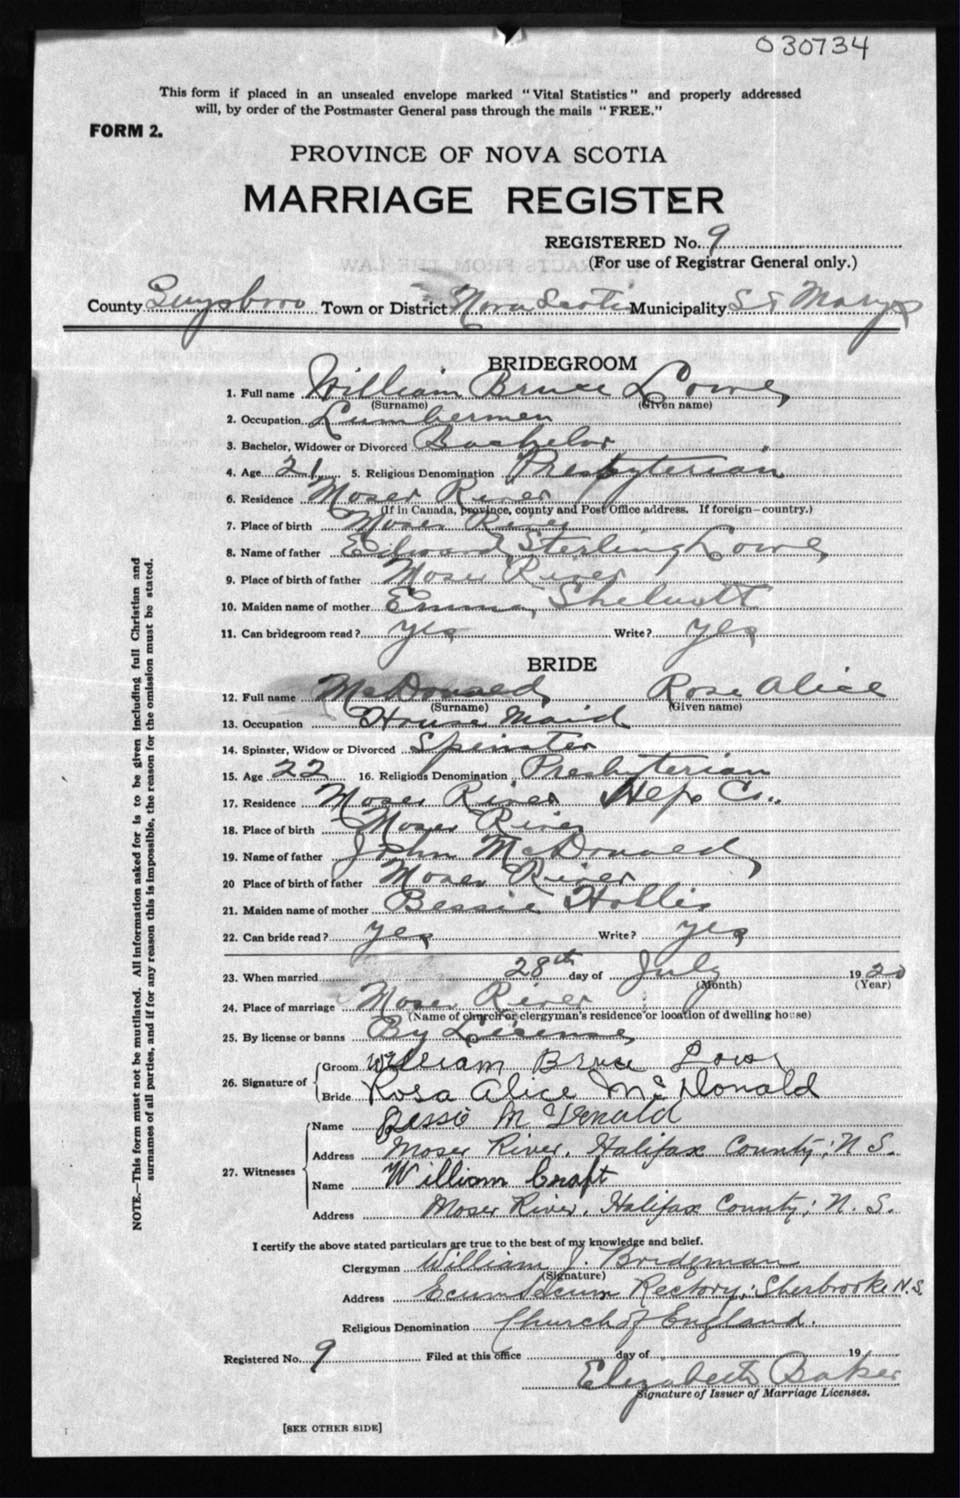 030734
This form if placed in an unsealed envelope marked "Vital Statistics" and properly addressed
will, by order of the Postmaster General pass through the mails "FREE."
FORM 2.
PROVINCE OF NOVA SCOTIA
MARRIAGE REGISTER
REGISTERED No. 9
(For use of Registrar General only.)
County Guysboro Town or District Nova Scotia Municipality St Marys
BRIDEGROOM
1. Full name William Bruce Lowe
(Surname) (Given name)
2. Occupation Lumbermen
3. Bachelor, Widower or Divorced Bachelor
4. Age 21 5. Religious Denomination Presbyterian
6. Residence Moser River
(If in Canada, province, county and Post Office address. If foreign—country.)
7. Place of birth Moser River
8. Name of father Edward Sterling Lowe
9. Place of birth of father Moser River
10. Maiden name of mother Emma
11. Can bridegroom read? yes Write? yes
BRIDE
12. Full name McDonald, Rose Alice
(Surname) (Given name)
13. Occupation House Maid
14. Spinster, Widow or Divorced Spinster
15. Age 22 16. Religious Denomination Presbyterian
17. Residence Moser River Hfx Co.,
18. Place of birth Moser River
19. Name of father John McDonald,
20 Place of birth of father Moser River
21. Maiden name of mother Bessie Hollis
22. Can bride read? yes Write? yes
23. When married 28th day of July 1920
(Month) (Year)
24. Place of marriage Moser River
(Name of church or clergyman's residence or location of dwelling house)
25. By license or banns By License,
26. Signature of Groom William Bruce Low
Bride Rosa Alice McDonald
27. Witnesses Name Bessie McDonald
Address Moser River, Halifax County, N. S.
Name William Croft
Address Moser River, Halifax County, N. S.
I certify the above stated particulars are true to the best of my knowledge and belief.
Clergyman William J. Bridgman
(Signature)
Address Ecum Secum Rectory, Sherbrooke N.S.
Religious Denomination Church of England.
Registered No. 9 Filed at this office day of 19
Elizabeth Baker
Signature of Issuer of Marriage Licenses.
[SEE OTHER SIDE]
NOTE.—This form must not be mutilated. All information asked for is to be given including full Christian and
surnames of all parties, and if for any reason this is impossible, the reason for the omission must be stated.